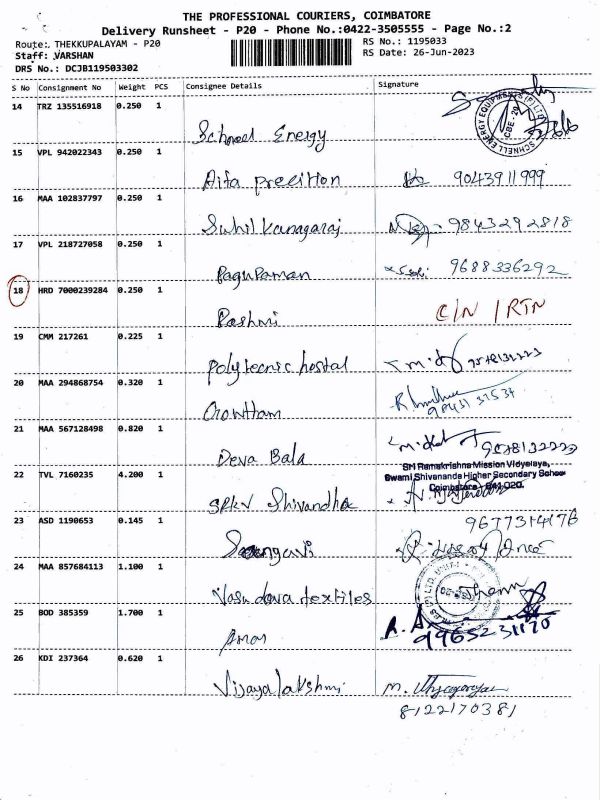 THE PROFESSIONAL COURIERS, COIMBATORE
Delivery Runsheet - P20 - Phone No.:0422-3505555 - Page No.:2
Route: THEKKUPALAYAM - P20
RS No.: 1195033
Staff: VARSHAN
RS Date: 26-Jun-2023
DRS No.: DCJB119503302
S No Consignment No Weight PCS Consignee Details Signature
14 TRZ 135516918 0.250 1
SCHNELL ENERGY EQUIPMENTS (P) LTD
CBE - 20
Schneel Energy
15 VPL 942022343 0.250 1
Aifa precition 9043911999
16 MAA 102837797 0.250 1
Suhil kanagaraj 9843292818
17 VPL 218727058 0.250 1
Paguraman 9688336292
18 HRD 7000239284 0.250 1
Rashmi C/N / RTN
19 CMM 217261 0.225 1
polytecnic hostal
20 MAA 294868754 0.320 1
Gowtham
21 MAA 567128498 0.820 1
Deva Bala
22 TVL 7160235 4.200 1
Sri Ramakrishna Mission Vidyalaya,
Swami Shivananda Higher Secondary School
Coimbatore - 641 020.
SRKV Shivandha
23 ASD 1190653 0.145 1
9677314176
24 MAA 857684113 1.100 1
Vasudeva textiles
25 BOD 385359 1.700 1
Amar 9965231170
26 KDI 237364 0.620 1
Vijayalakshmi M.
8122170381